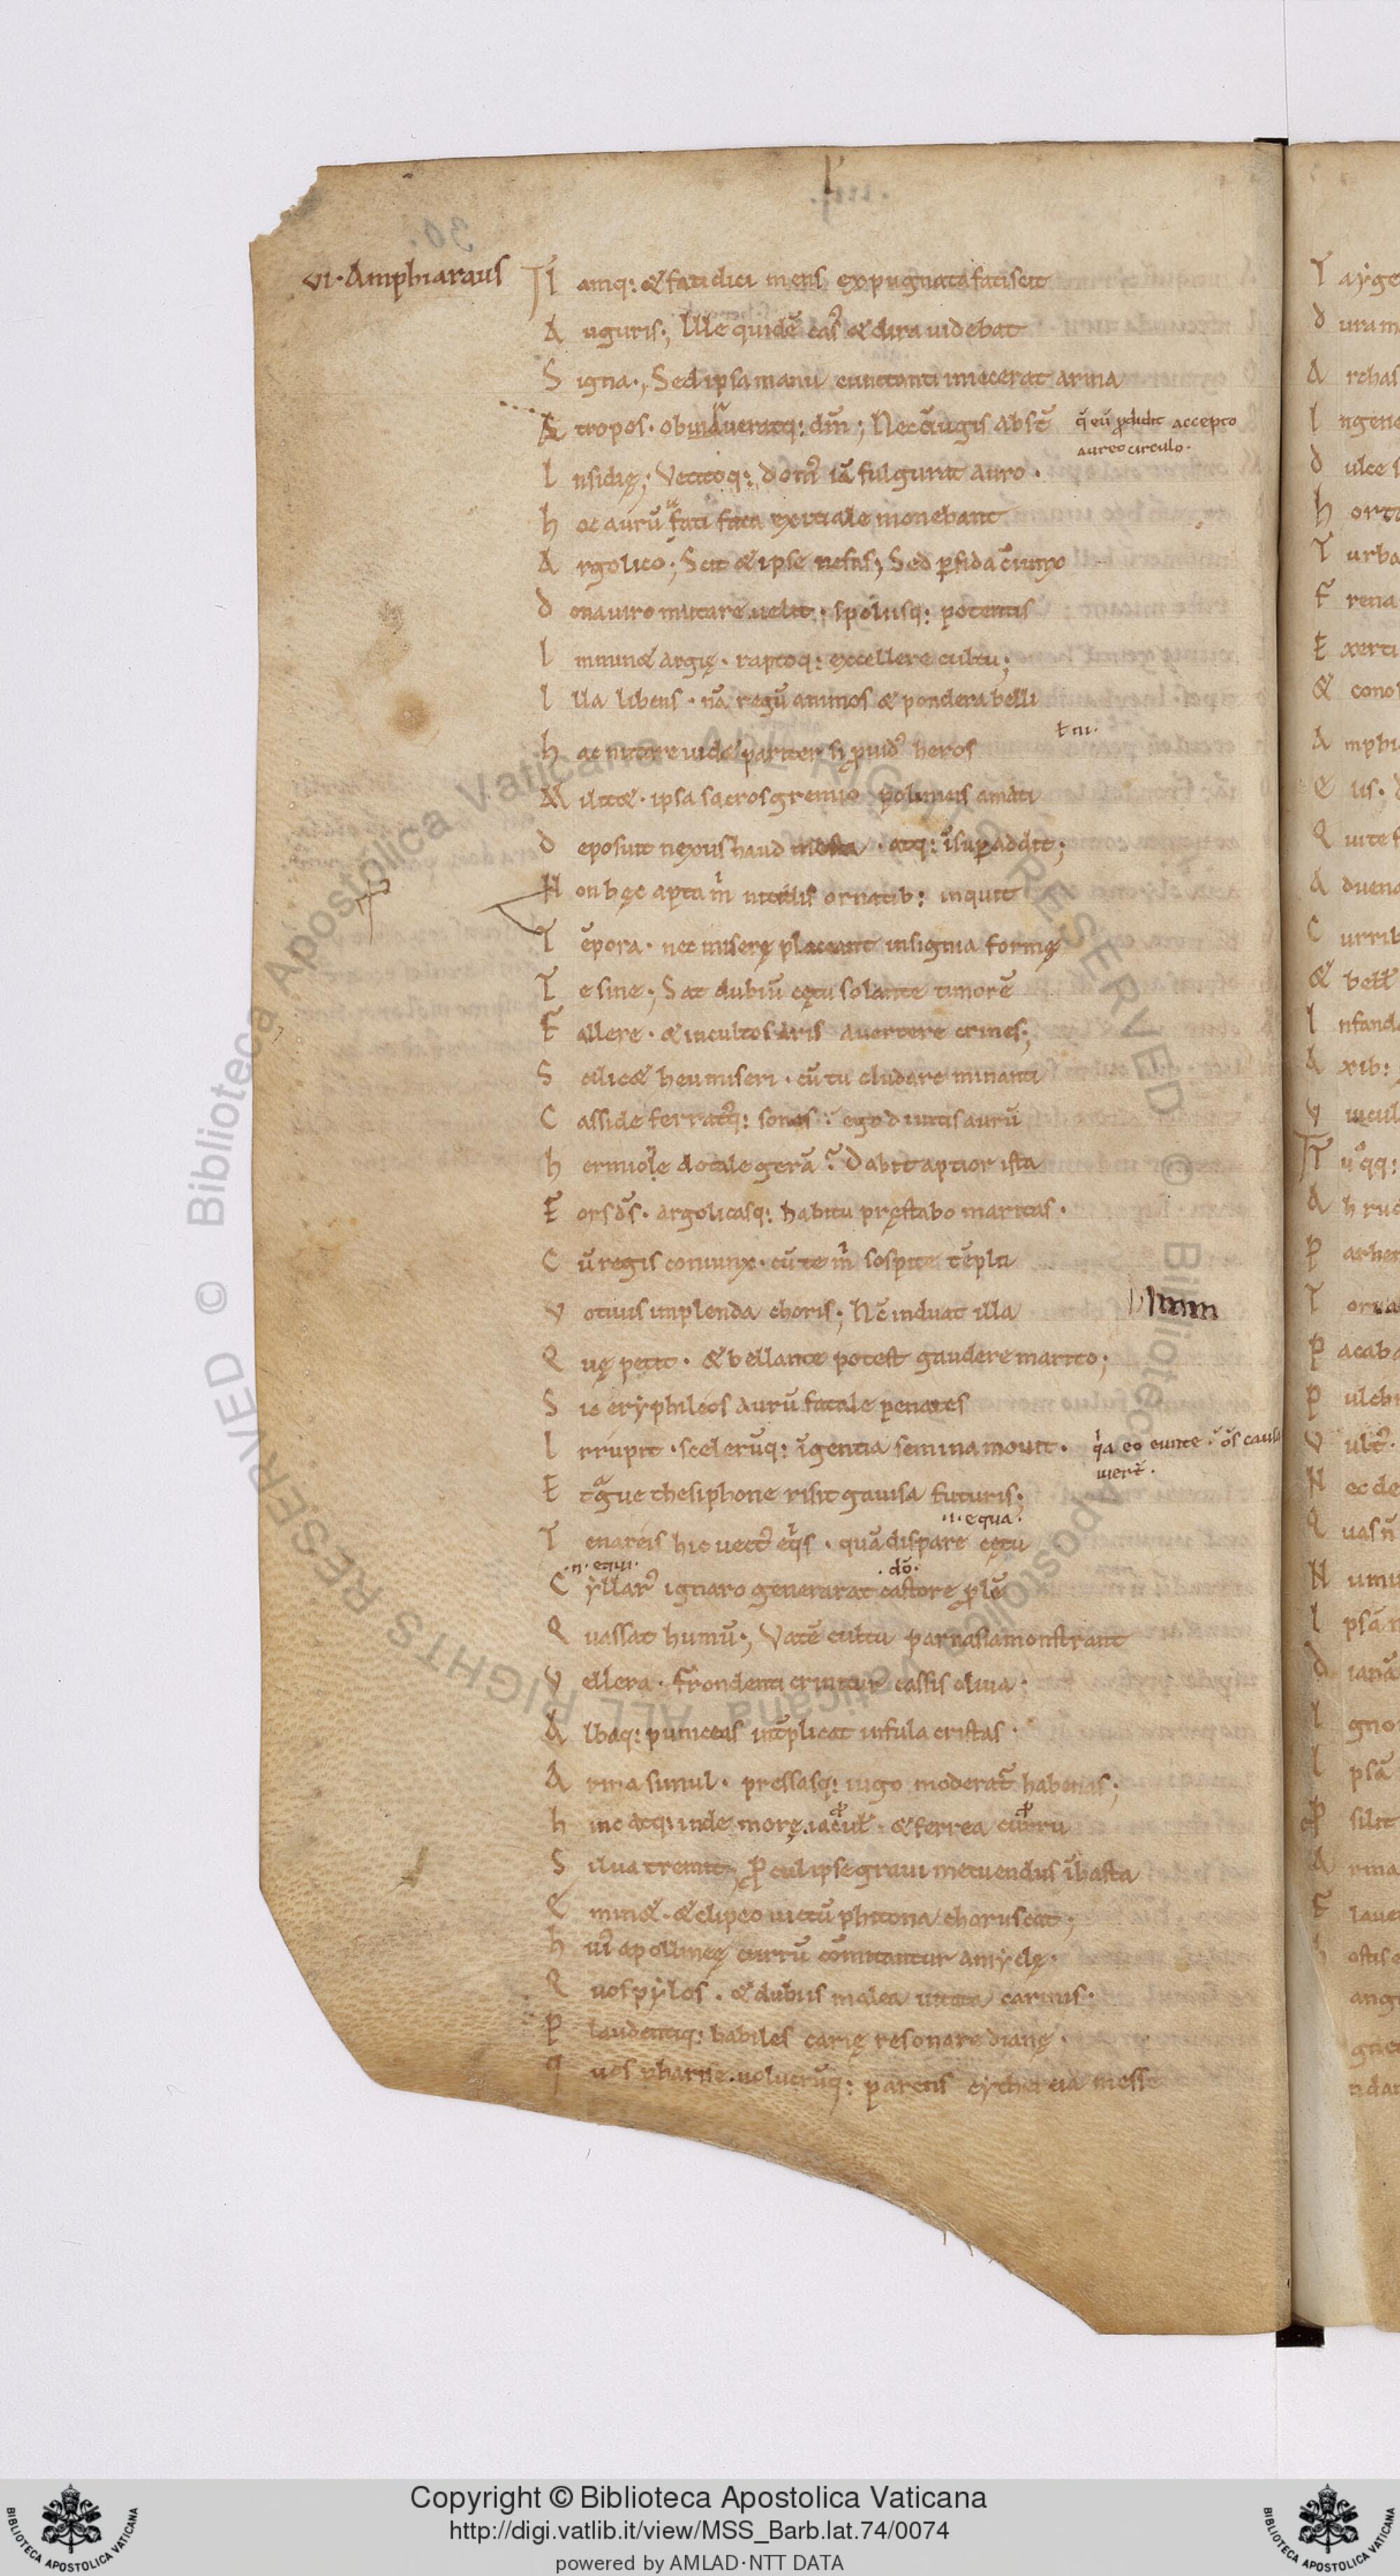 vi. Amphiaraus
Iamq: & fatidici mens expugnata fatiscit
Auguris; Ille quidē cas᷒ & dira uidebat
Signa; Sed ipsa manu cunctanti iniecerat arma
Atropos. obrueratq: dm̄; Nec c̄iugis abst̄
q̄ eū ꝓdidit accepto
aureo circulo.
Insidię; Vetitoq: dom᷒ iā fulgurat auro.
hoc aurū uati fata exitiale monebant
Argolico; Scit & ipse nefas; Sed ꝑfida c̄iunx
dona uiro mutare uelit. spoliisq: potentis
Imminæ argię. raptoq: excellere cultu;
Illa libens. nā regū animos & pondera belli
hac nutare uidet pariter ſi ꝓuid᷒ heros
Militæ. ipsa sacros gremio polinicis amati
deposuit nexus haud mesta. atq: īsuꝑ addit;
Non hęc apta m̓ nitidis ornatib: inquit
Tēpora. nec miserę placeant insignia formę
Te sine; Sat dubiū cętu solante timorē
Fallere. & incultos aris auertere crines;
Scilicæ heu miseri. cū tu cludare minanti
Casside ferrat᷒q: sones. ego diuitis aurū
hermiolę dotale gerā? Dabit aptior ista
Fors d̄s. argolicasq: habitu pręstabo maritas.
Cū regis coniunx. cū te m̓ sospite tēpla
Votiuis implenda choris; Nc̄ induat illa
Quę petit. & bellante potest gaudere marito;
Sic eryphileos aurū fatale penates
Irrupit. scelerūq: īgentia semina mouit.
q̓a eo eunte. ōs causa
Et graue thesiphone risit gauisa futuris;
.n. equa.
Tenareis hic uect᷒ eq̓s. quā dispare cętu
.n. equi.
.dō.
Cyllar᷒ ignaro generarat castore ꝓlē
Quassat humū; Vatē cultu parnasia monstrant
Vellera. frondenti crinitur cassis oliua.
Albaq: puniceas int̄plicat infula cristas.
Arma simul. pressasq: iugo moderat᷒ habenas;
hinc atq: inde morę iacul᷒. & ferrea curru
Silua tremit; Ꝓcul ipse graui metuendus ī hasta
Eminæ. & clipeo uictū phitona choruscat;
hui᷒ apollineę currū comitantur amyclę.
Quos pylos. & dubiis malea uitata carinis.
Plaudentiq: habiles carię resonare dianę.
quos pharise. uolucrūq: parens cytherēia messe